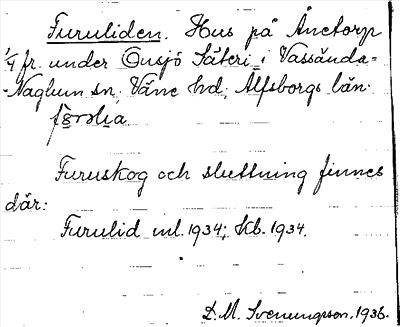 Furuliden. Hus på Ånetorp
1/4 fr. under Önsjö Säteri i Vassända-
-Naglum sn; Väne hd; Älfsborgs län.
Furuskog och sluttning finnes
där:
Furulid ml. 1934; Kb. 1934.
D. M. Svenungsson. 1936.